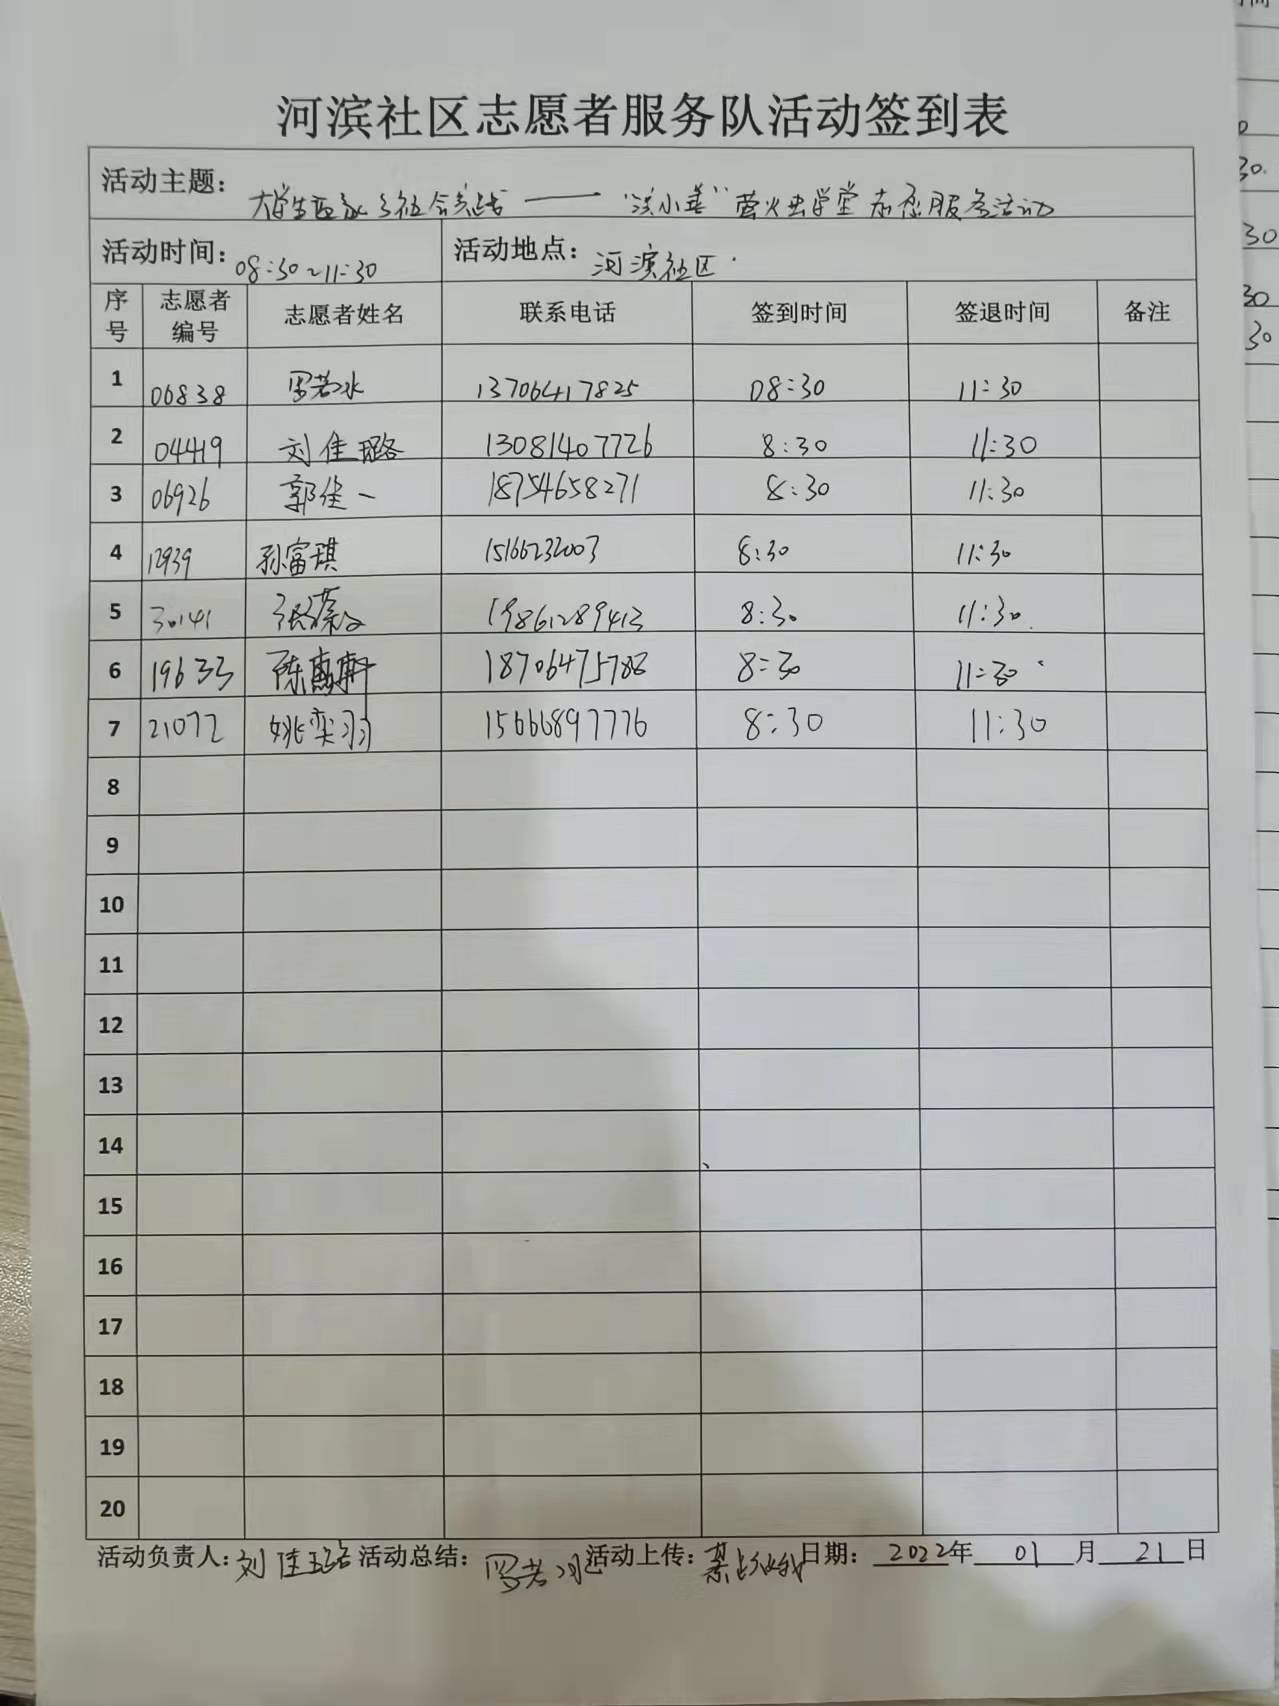 河滨社区志愿者服务队活动签到表
活动主题：大学生返家乡社会实践——“洪小善”萤火虫学堂志愿服务活动
活动时间：08:30~11:30 活动地点：河滨社区
序号 志愿者编号 志愿者姓名 联系电话 签到时间 签退时间 备注
1 06838 罗若冰 13706417825 08:30 11:30
2 04419 刘佳璐 13081407726 8:30 11:30
3 06926 郭佳一 18754658271 8:30 11:30
4 12939 孙富琪 15166232003 8:30 11:30
5 30141 张 19861289413 8:30 11:30
6 19633 陈 轩 18706475788 8:30 11:30
7 21072 姚奕羽 15666897776 8:30 11:30
8
9
10
11
12
13
14
15
16
17
18
19
20
活动负责人：刘佳璐 活动总结：罗若冰 活动上传： 日期：2022年01月21日
30
30
30
30